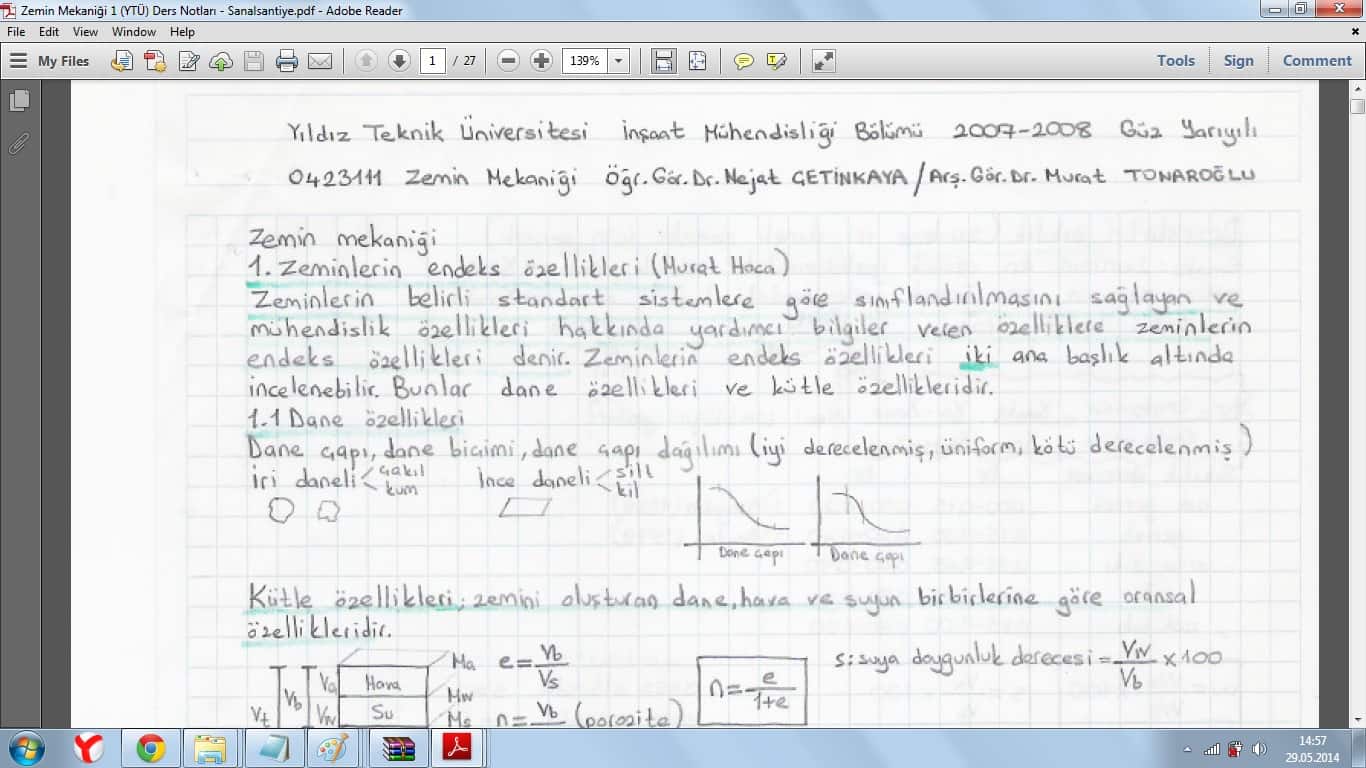 Zemin Mekaniği 1 (YTÜ) Ders Notları - Sanalsantiye.pdf - Adobe Reader
File Edit View Window Help
My Files 1 / 27 139% Tools Sign Comment
Yıldız Teknik Üniversitesi İnşaat Mühendisliği Bölümü 2007-2008 Güz Yarıyılı
0423111 Zemin Mekaniği Öğr.Gör.Dr.Nejat ÇETİNKAYA/Arş.Gör.Dr.Murat TONAROĞLU
Zemin mekaniği
1. Zeminlerin endeks özellikleri (Murat Hoca)
Zeminlerin belirli standart sistemlere göre sınıflandırılmasını sağlayan ve
mühendislik özellikleri hakkında yardımcı bilgiler veren özelliklere zeminlerin
endeks özellikleri denir. Zeminlerin endeks özellikleri iki ana başlık altında
incelenebilir. Bunlar dane özellikleri ve kütle özellikleridir.
1.1 Dane özellikleri
Dane çapı, dane biçimi, dane çapı dağılımı (iyi derecelenmiş, üniform, kötü derecelenmiş)
İri daneli < çakıl kum İnce daneli < silt kil
Dane çapı Dane çapı
Kütle özellikleri; zemini oluşturan dane, hava ve suyun birbirlerine göre oransal
özellikleridir.
Vt Vb Va Hava Ma e = Vb/Vs n = e/1+e s: suya doygunluk derecesi = Vw/Vb x 100
Vw Su Mw
Ms n = Vb (porozite)
14:57
29.05.2014